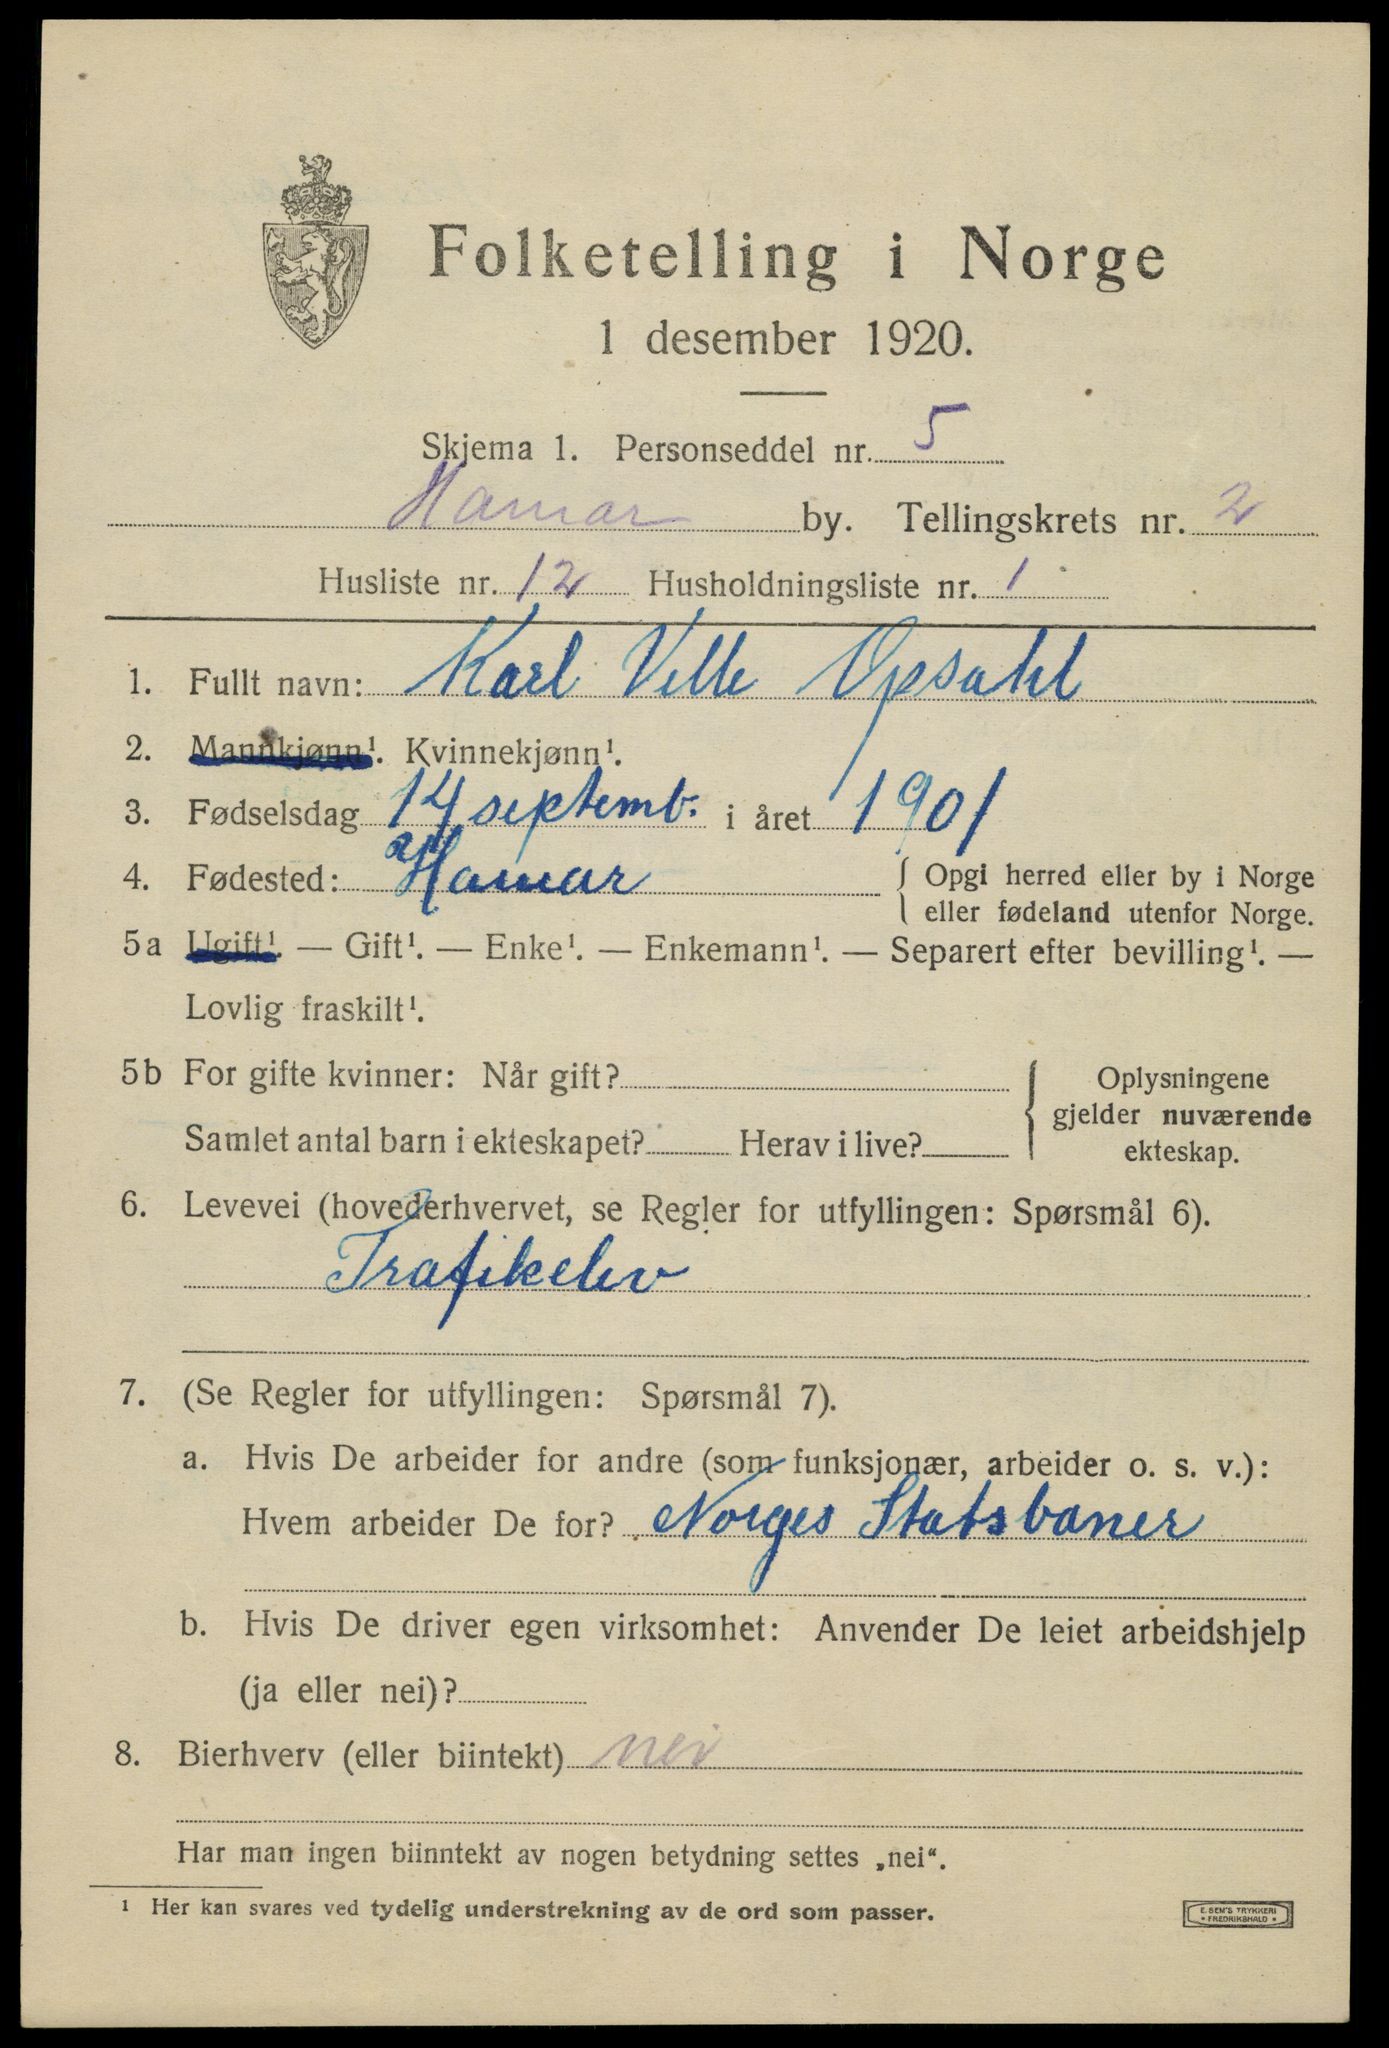 Folketelling i Norge
1 desember 1920.
Skjema 1. Personseddel nr. 5
Hamar by. Tellingskrets nr. 2
Husliste nr. 12 Husholdningsliste nr. 1
1. Fullt navn: Karl Velle Opsahl
2. Mannkjønn¹. Kvinnekjønn¹.
3. Fødselsdag 14 septemb. i året 1901
4. Fødested: Hamar { Opgi herred eller by i Norge
eller fødeland utenfor Norge.
5a Ugift¹. — Gift¹. — Enke¹. — Enkemann¹. — Separert efter bevilling¹. —
Lovlig fraskilt¹.
5b For gifte kvinner: Når gift? { Oplysningene
gjelder nuværende
Samlet antal barn i ekteskapet? Herav i live? ekteskap.
6. Levevei (hovederhvervet, se Regler for utfyllingen: Spørsmål 6).
Trafikelev
7. (Se Regler for utfyllingen: Spørsmål 7).
a. Hvis De arbeider for andre (som funksjonær, arbeider o. s. v.):
Hvem arbeider De for? Norges Statsbaner
b. Hvis De driver egen virksomhet: Anvender De leiet arbeidshjelp
(ja eller nei)?
8. Bierhverv (eller biintekt) nei
Har man ingen biinntekt av nogen betydning settes „nei“.
¹ Her kan svares ved tydelig understrekning av de ord som passer.
E. SEM'S TRYKKERI
• FREDRIKSHALD •